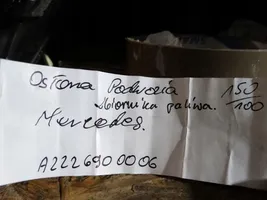 Osłona Podwozia 150
zbiornika paliwa. 100
Mercedes.
A222 690 00 06